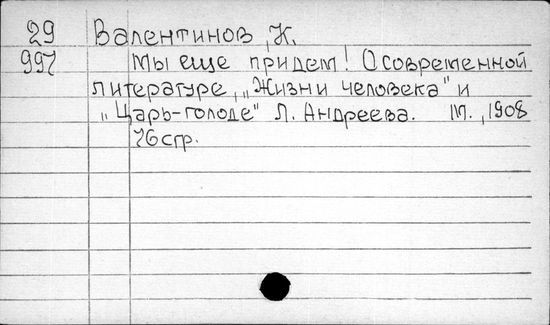 29 Валентинов, Н.
997 Мы еще придем! О современной
литературе, „Жизни человека" и
„Царь-голоде" Л. Андреева. М., 1908
76 стр.